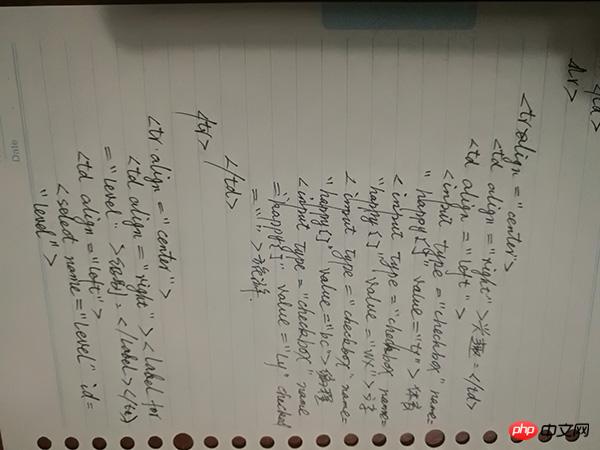 </td>
</tr>
<tr align = "center">
<td align = "right">兴趣:</td>
<td align = "left">
<input type = "checkbox" name=
"happy[]" value = "ty">体育
<input type = "checkbox" name=
"happy[]" value = "wx">
<input type = "checkbox" name=
"happy[]" value = "bc">编程
<input type = "checkbox" name
="happy[]" value = "ly" checked
= "">旅游.
</td>
</tr>
<tr align = "center">
<td align = "right"><label for
= "level">级别:</label></td>
<td align = "left">
<select name = "level" id =
"level">
Date
php 中文网